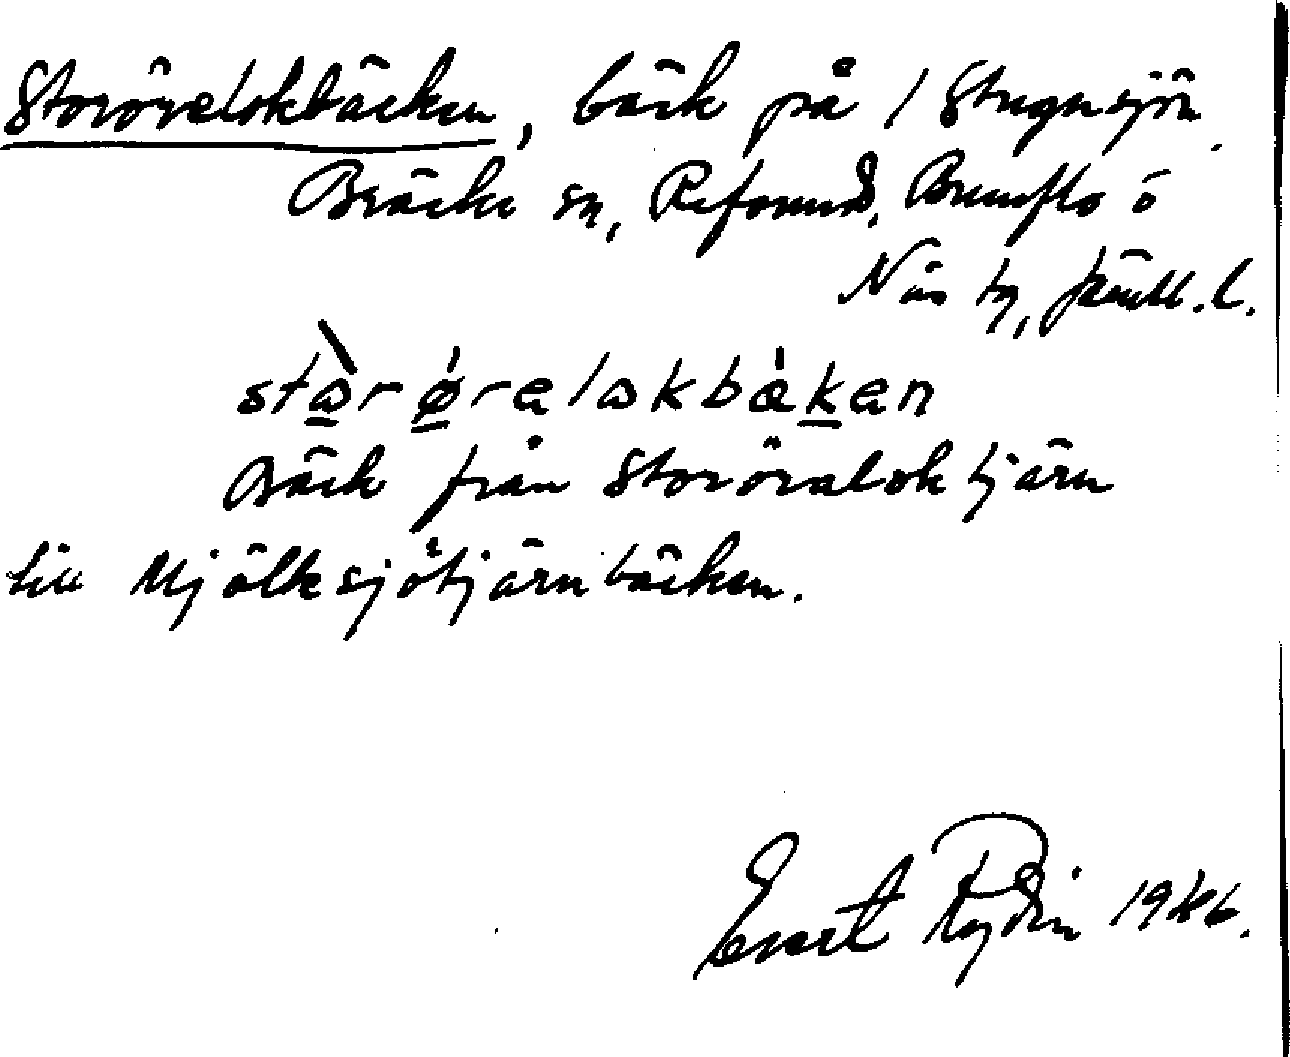 Storörelokbäcken, bäck på 1 Stugusjön.
Bräcke sn, Refsund, Brunflo o
Näs tg, Jämtl. l.
stàrørelakbækan
Bäck från Storöraloktjärn
till Mjölksjötjärnbäcken.
Evert Rydin 1946.